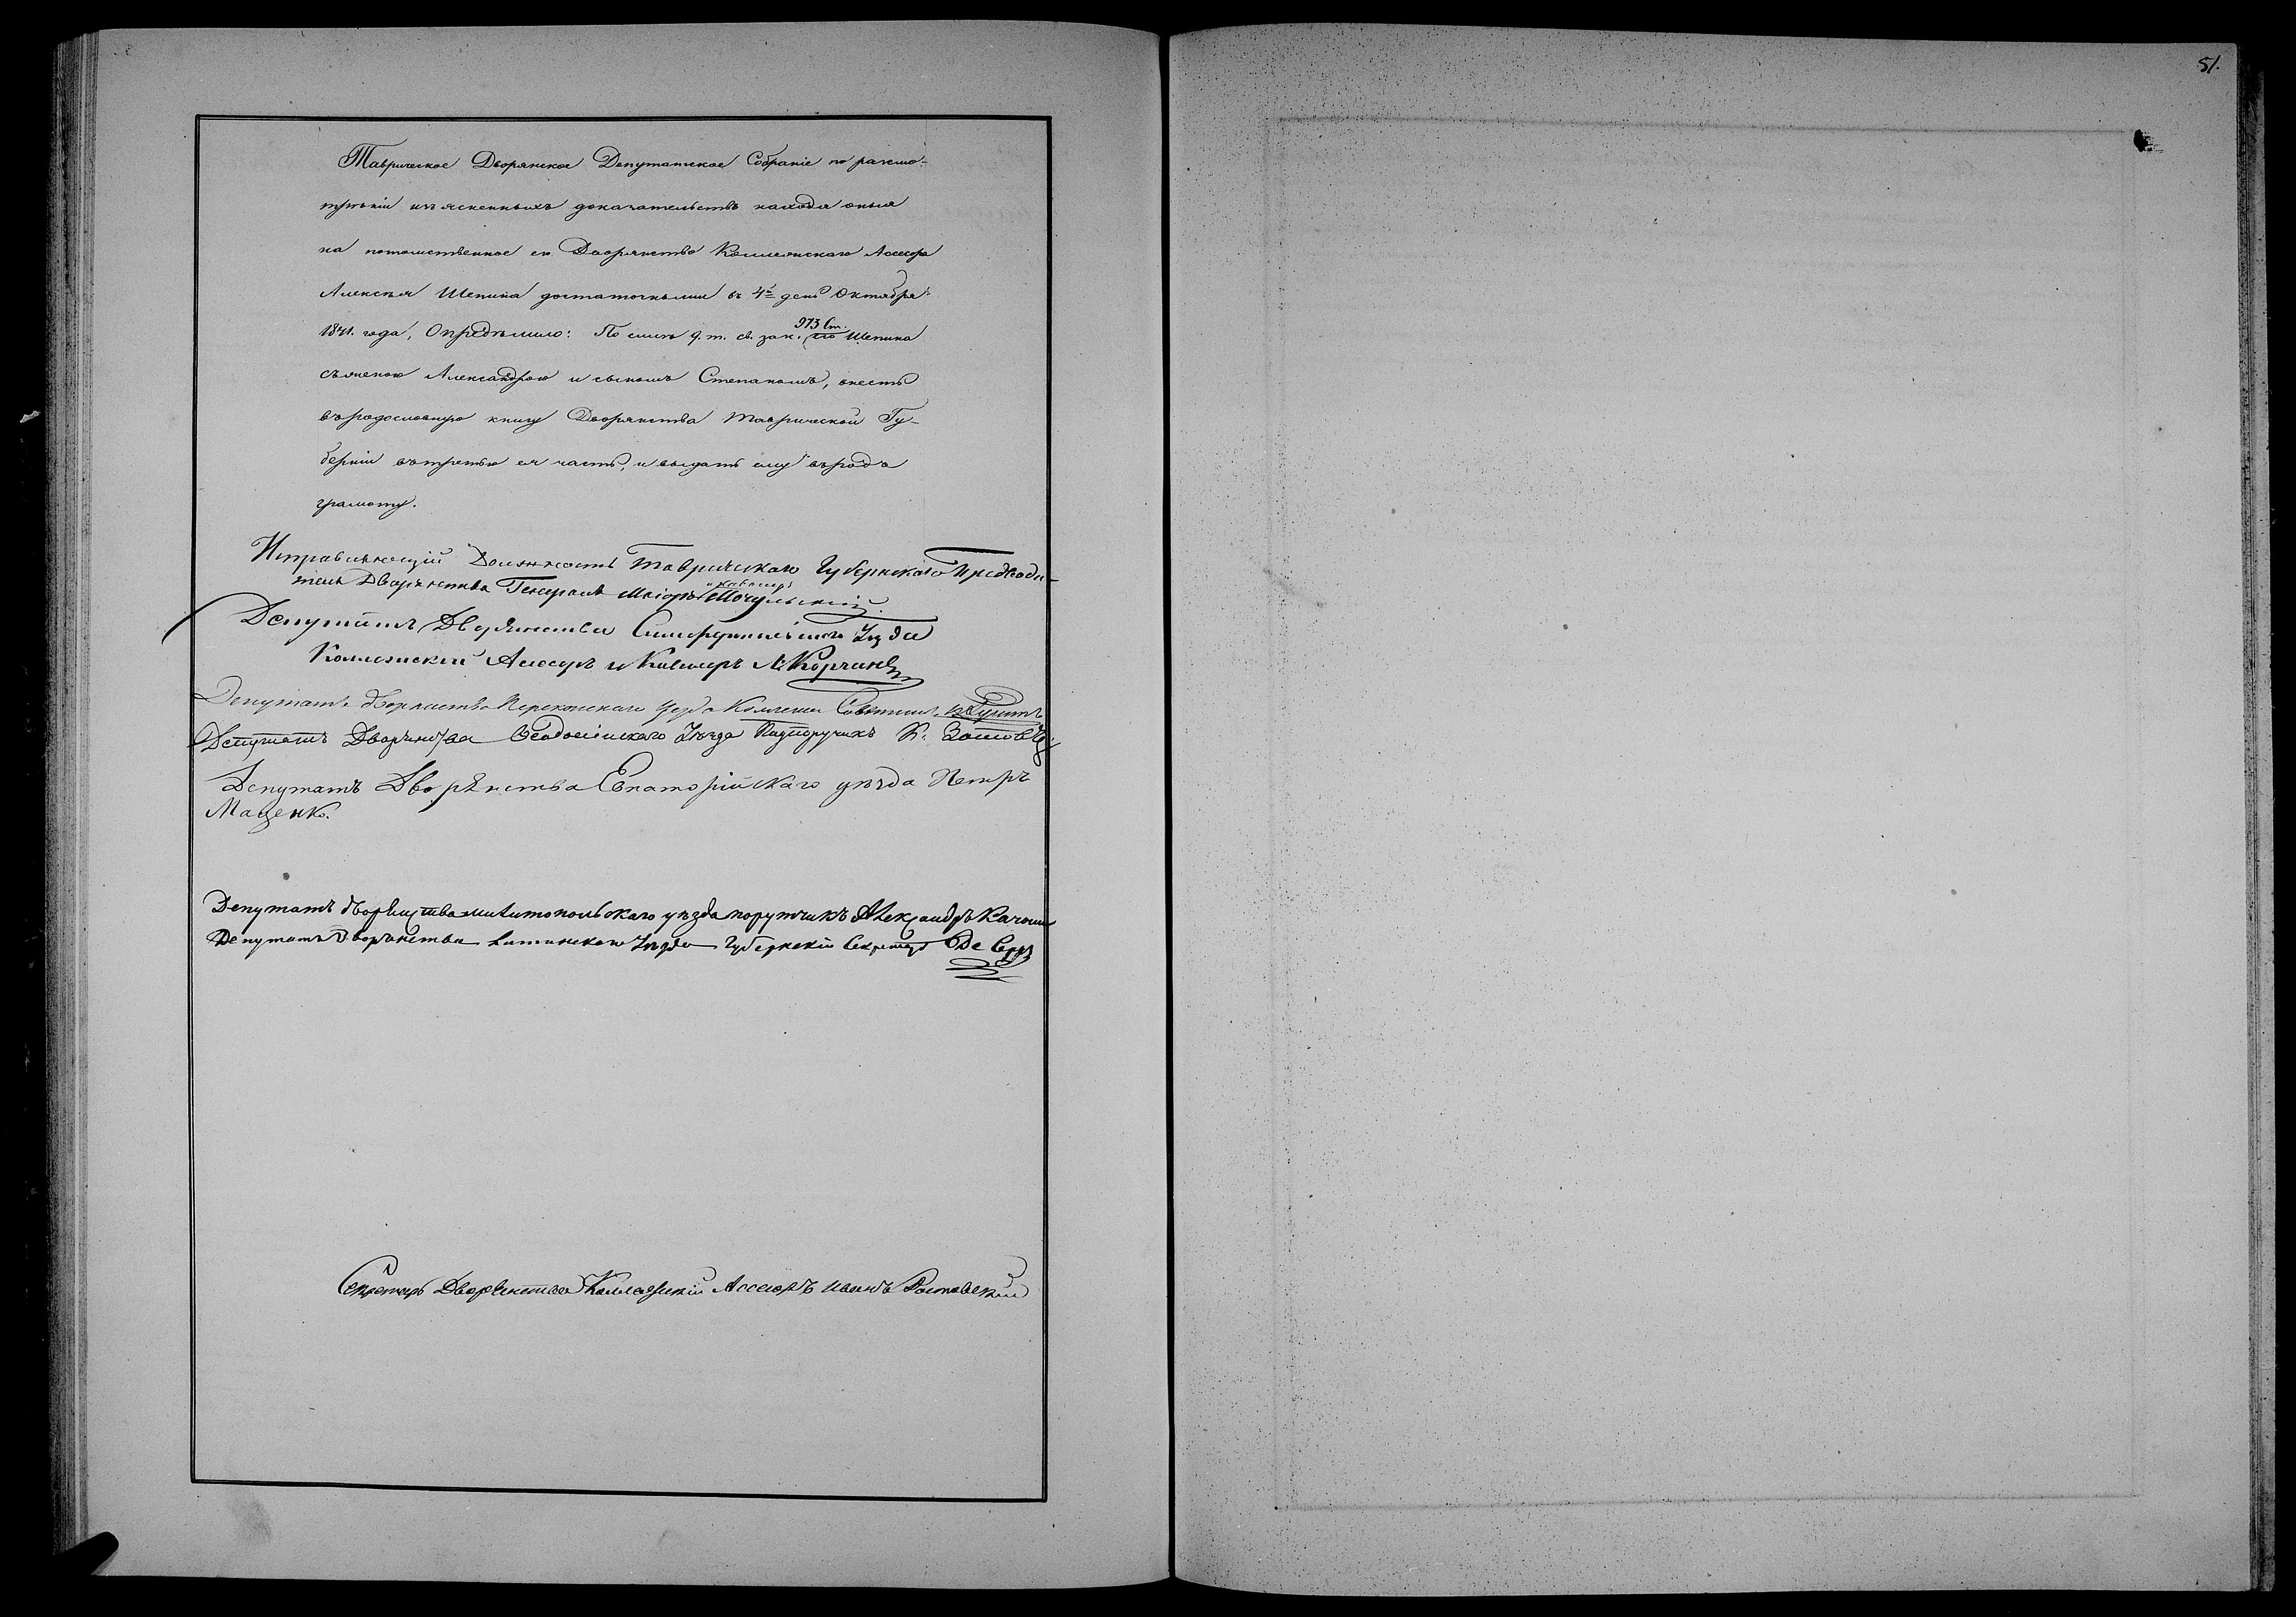 51.
Таврическое Дворянское Депутатское Собраніе по разсмо-
трѣніи изъясненныхъ доказательствъ находя оныя
на потомственное его Дворянство Коллежскаго Ассесора
Алексѣя Шепина достаточными въ 4й день Октября
1841. года, Опредѣлило: По силѣ 9. т. св. зак. 973 Ст. его Шепина
съ женою Александрою и сыномъ Степаномъ, внесть
въ родословную книгу Дворянства Таврической Гу-
берніи въ третью ея часть, и выдать ему въ родъ
грамоту.
Исправляющій Должность Таврическаго Губернскаго Предводи-
теля Дворянства Генералъ Маіоръ и Кавалеръ
Депутатъ Дворянства Симферопольскаго Уѣзда
Коллежскій Ассесоръ и Кавалеръ
Депутатъ Дворянства Перекопскаго Уезда Советникъ
Депутатъ Дворянства Ѳеодосійскаго Уѣзда Подпоручикъ
Депутатъ Дворянства Евпаторійскаго уѣзда Петръ
Маценко.
Депутатъ Дворянства Милитопольскаго уѣзда порутчикъ Александръ
Депутатъ Дворянства Уѣзда Губернскій Секретарь Де Серръ
Секретарь Дворянства Коллежскій Ассесоръ Иванъ Ростовскій